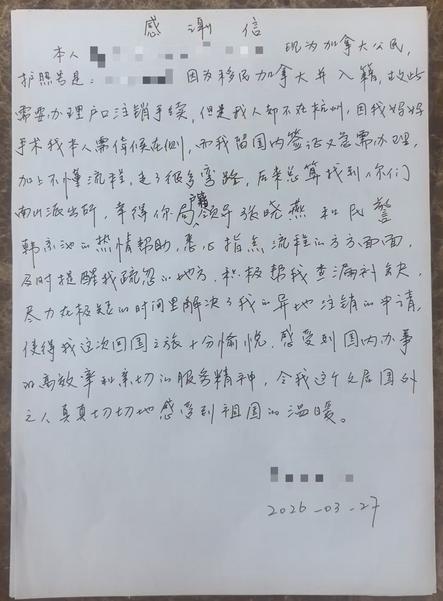 感谢信
本人 现为加拿大公民,
护照号是: 因为移民加拿大并入籍, 故此
需要办理户口注销手续, 但是我人却不在杭州, 因我妈妈
手术我本人需侍候在侧, 而我留国内签证又急需办理,
加上不懂流程, 走了很多弯路, 后来总算找到你们
南山派出所, 幸得你局户籍领导张晓燕和民警
韩 的热情帮助, 悉心指点流程的方方面面,
及时提醒我疏忽的地方, 积极帮我查漏补缺,
尽力在极短的时间里解决了我的异地注销的申请,
使得我这次回国之旅十分愉悦, 感受到国内办事
的高效率和亲切的服务精神, 令我这个久居国外
之人真真切切地感受到祖国的温暖。
2026-03-27